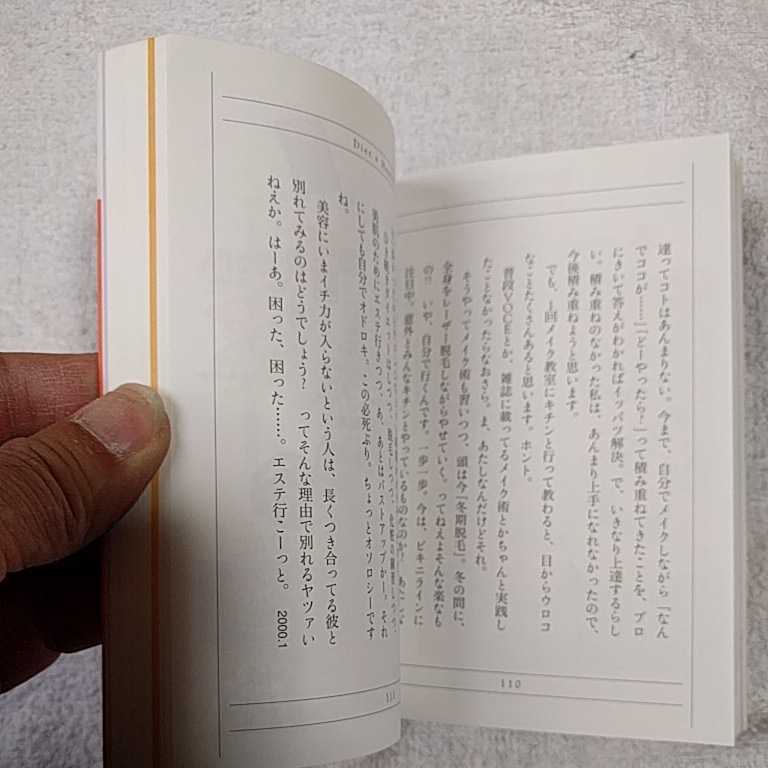 違ってコトはあんまりない。今まで、自分でメイクしながら「なん
でココが……」「どーやったら?」って積み重ねてきたことを、プロ
にきいて答えがわかればイッパツ解決。で、いきなり上達するらし
い。積み重ねのなかった私は、あんまり上手になれなかったので、
今後積み重ねようと思います。
でも、一回メイク教室にキチンと行って教わると、目からウロコ
なことたくさんあると思います。ホント。
普段VOCEとか、雑誌に載ってるメイク術とかちゃんと実践し
たことなかったらなおさら。ま、あたしなんだけどそれ。
そうやってメイク術も習いつつ、頭は今「冬期脱毛」。冬の間に、
全身をレーザー脱毛しながらやせていく。ってねえよそんな楽なも
の!いや、自分で行くんです。一歩一歩。今は、ビキニラインに
注目中。意外とみんなキチンとやっているものなのか?
110
Diet
美肌のためにエステ行きつつ、あ、あとはバストアップかー。それ
にしても自分でオドロキ。この必死ぶり。ちょっとオソロシーです
ね。
美容にいまイチ力が入らないという人は、長くつき合ってる彼と
別れてみるのはどうでしょう? ってそんな理由で別れるヤツァい
ねえか。はーあ。困った、困った……。エステ行こーっと。 2000.1
111